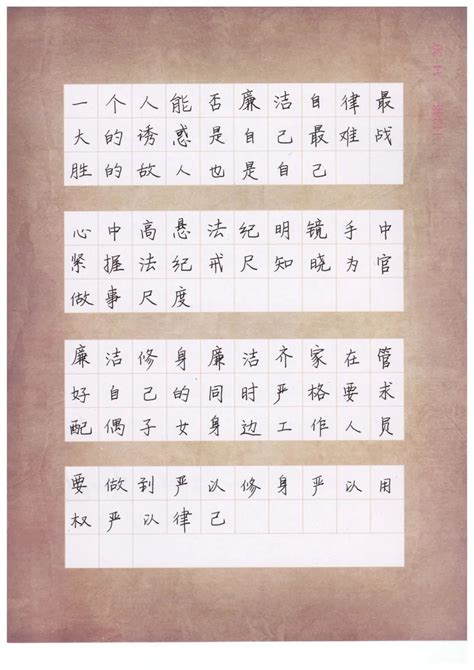 一个人能否廉洁自律最
大的诱惑是自己最难战
胜的故人也是自己
心中高悬法纪明镜手中
紧握法纪戒尺知晓为官
做事尺度
廉洁修身廉洁齐家在管
好自己的同时严格要求
配偶子女身边工作人员
要做到严以修身严以用
权严以律己